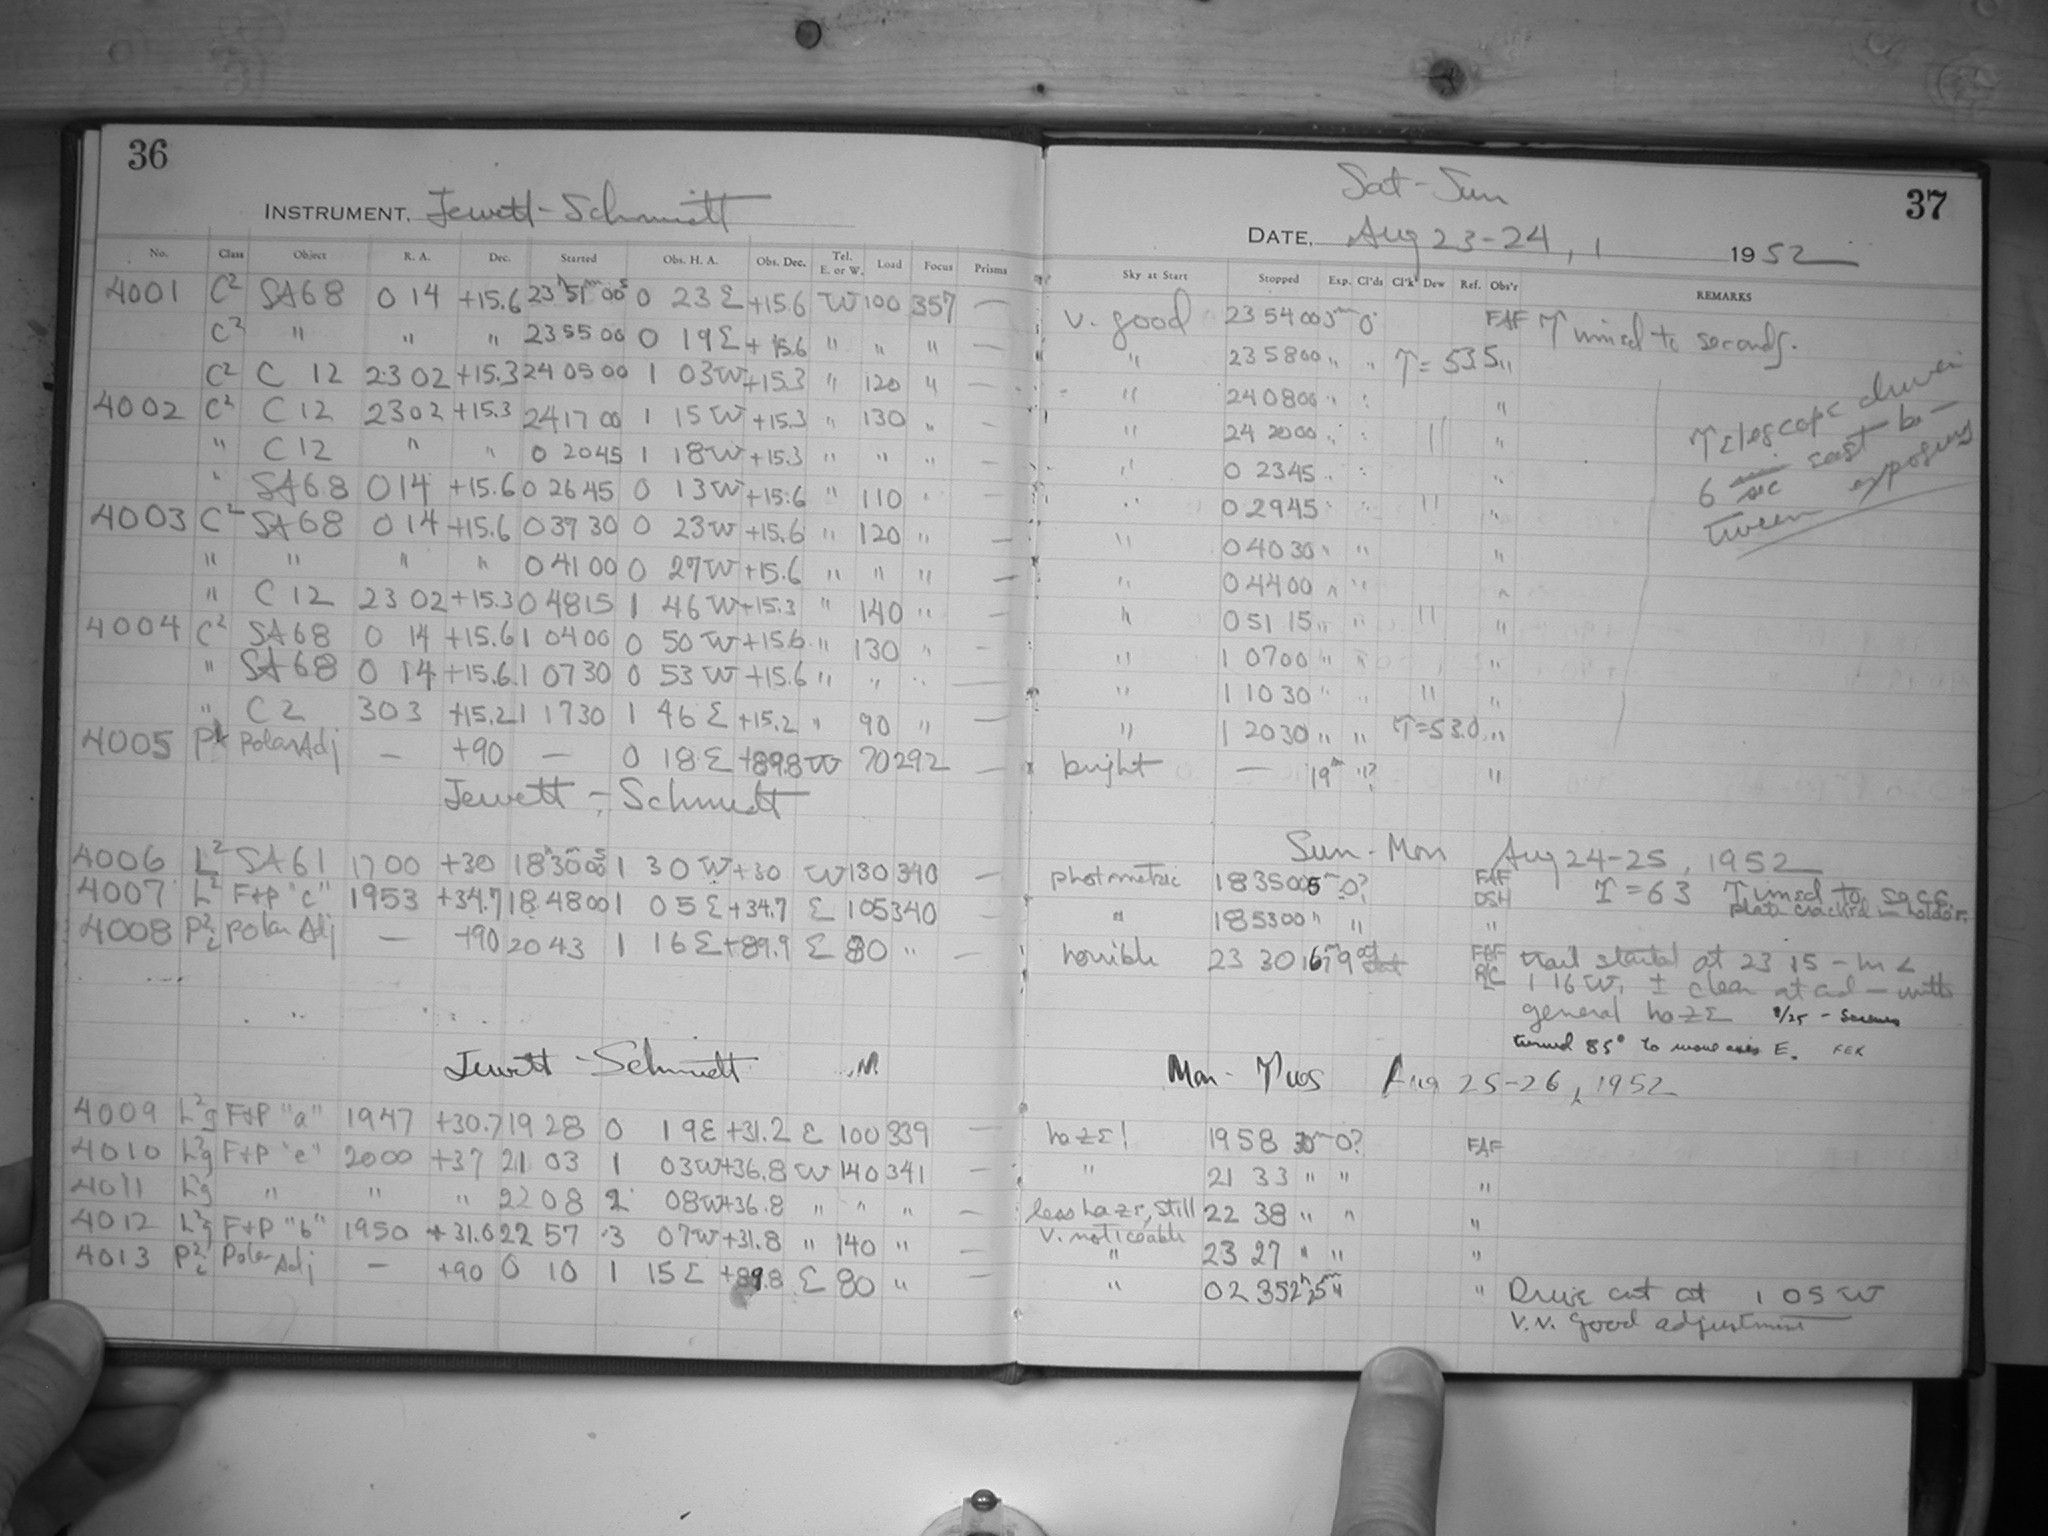 36
INSTRUMENT, Jewett-Schmidt
No. Class Object R. A. Dec. Started Obs. H. A. Obs. Dec. Tel. E. or W. Load Focus Prisms
4001 C² SA68 0 14 +15.6 23ʰ51ᵐ00ˢ 0 23 E +15.6 W 100 357 —
C² " " " 23 55 00 0 19 E +15.6 " " " —
C² C 12 23 02 +15.3 24 05 00 1 03 W +15.3 " 120 " —
4002 C² C 12 23 02 +15.3 24 17 00 1 15 W +15.3 " 130 " —
" C 12 " " 0 20 45 1 18 W +15.3 " " " —
" SA68 0 14 +15.6 0 26 45 0 13 W +15.6 " 110 " —
4003 C² SA68 0 14 +15.6 0 37 30 0 23 W +15.6 " 120 " —
" " " " 0 41 00 0 27 W +15.6 " " " —
" C 12 23 02 +15.3 0 48 15 1 46 W +15.3 " 140 " —
4004 C² SA68 0 14 +15.6 1 04 00 0 50 W +15.6 " 130 " —
" SA68 0 14 +15.6 1 07 30 0 53 W +15.6 " " " —
" C 2 3 03 +15.2 1 17 30 1 46 E +15.2 " 90 " —
4005 Polar Adj — +90 — 0 18 E +89.8 W 70 292 —
Jewett - Schmidt
4006 L² SA61 17 00 +30 18ʰ30ᵐ00ˢ 1 30 W +30 W 130 340 —
4007 L² F+P "c" 19 53 +34.7 18 48 00 1 05 E +34.7 E 105 340 —
4008 P² Polar Adj — +90 20 43 1 16 E +89.9 E 80 " —
Jewett - Schmidt
4009 L²g F+P "a" 19 47 +30.7 19 28 0 19 E +31.2 E 100 339 —
4010 L²g F+P "e" 20 00 +37 21 03 1 03 W +36.8 W 140 341 —
4011 L²g " " " 22 08 2 08 W +36.8 " " " —
4012 L²g F+P "b" 19 50 +31.6 22 57 3 07 W +31.8 " 140 " —
4013 P² Polar Adj — +90 0 10 1 15 E +89.8 E 80 " —
37
Sat-Sun
DATE, Aug 23-24, 1952
Sky at Start Stopped Exp. Cl'ds Cl'k Dew Ref. Obs'r REMARKS
v. good 23 54 00 3ᵐ 0 FAF Timed to seconds.
" 23 58 00 " " T = 53.5 "
" 24 08 00 " " "
" 24 20 00 " " " "
" 0 23 45 " " "
" 0 29 45 " " " "
" 0 40 30 " " "
" 0 44 00 " " "
" 0 51 15 " " " "
" 1 07 00 " " "
" 1 10 30 " " " "
" 1 20 30 " " T = 53.0 "
bright — 19ᵐ "? "
Telescope driven
6 sec east be-
tween exposures
Sun-Mon Aug 24-25, 1952
photometric 18 35 00 5ᵐ 0? FAF DSH T = 63 Timed to secs.
" 18 53 00 " " " plate cracked in holder.
horrible 23 30 FAF trail started at 23 15 -
1 16 W, ± clear at end - with
general haze 8/25 - Screws
turned 85° to move axis E.
Mon-Tues Aug 25-26, 1952
haze! 19 58 30ᵐ 0? FAF
" 21 33 " " "
less haze, still 22 38 " " "
v. noticeable 23 27 " " "
" 02 35 2ʰ25ᵐ " " Drive cut at 1 05 W
v.v. good adjustment